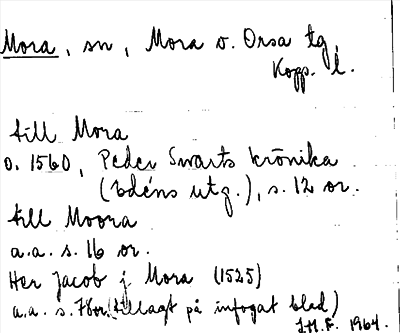 Mora, sn, Mora o. Orsa tg,
Kopp. l.
till Mora
o. 1560, Peder Swarts krönika
(Edéns utg.), s. 12 or.
till Moora
a.a. s. 16 or.
Her Jacob j Mora (1525)
a.a. s. 78 or. (tillagt på infogat blad)
J.H.F. 1964.